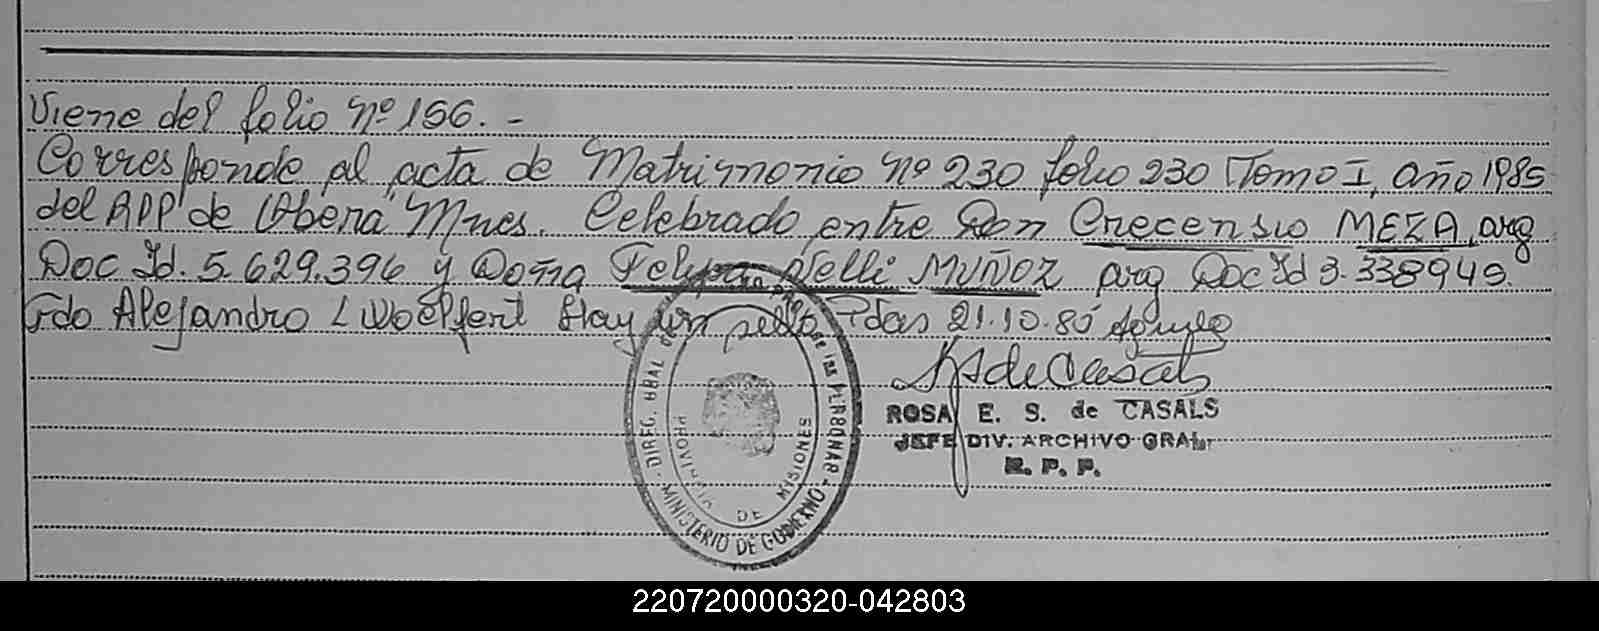 Viene del folio Nº 156. -
Corresponde al acta de Matrimonio Nº 230 folio 230 Tomo I, año 1985
del RPP de Oberá Mnes. Celebrado entre Don Crecensio MEZA, arg
Doc Id. 5.629.396 y Doña Felipa Nelli MUÑOZ arg Doc Id 3.338949.
Fdo Alejandro L Woelfert Hay un sello Pdas 21.10.85
ROSA E. S. de CASALS
JEFE DIV. ARCHIVO GRAL.
R. P. P.
DIREG. GRAL DE LAS PERSONAS
PROVINCIA DE MISIONES
MINISTERIO DE GOBIERNO
220720000320-042803